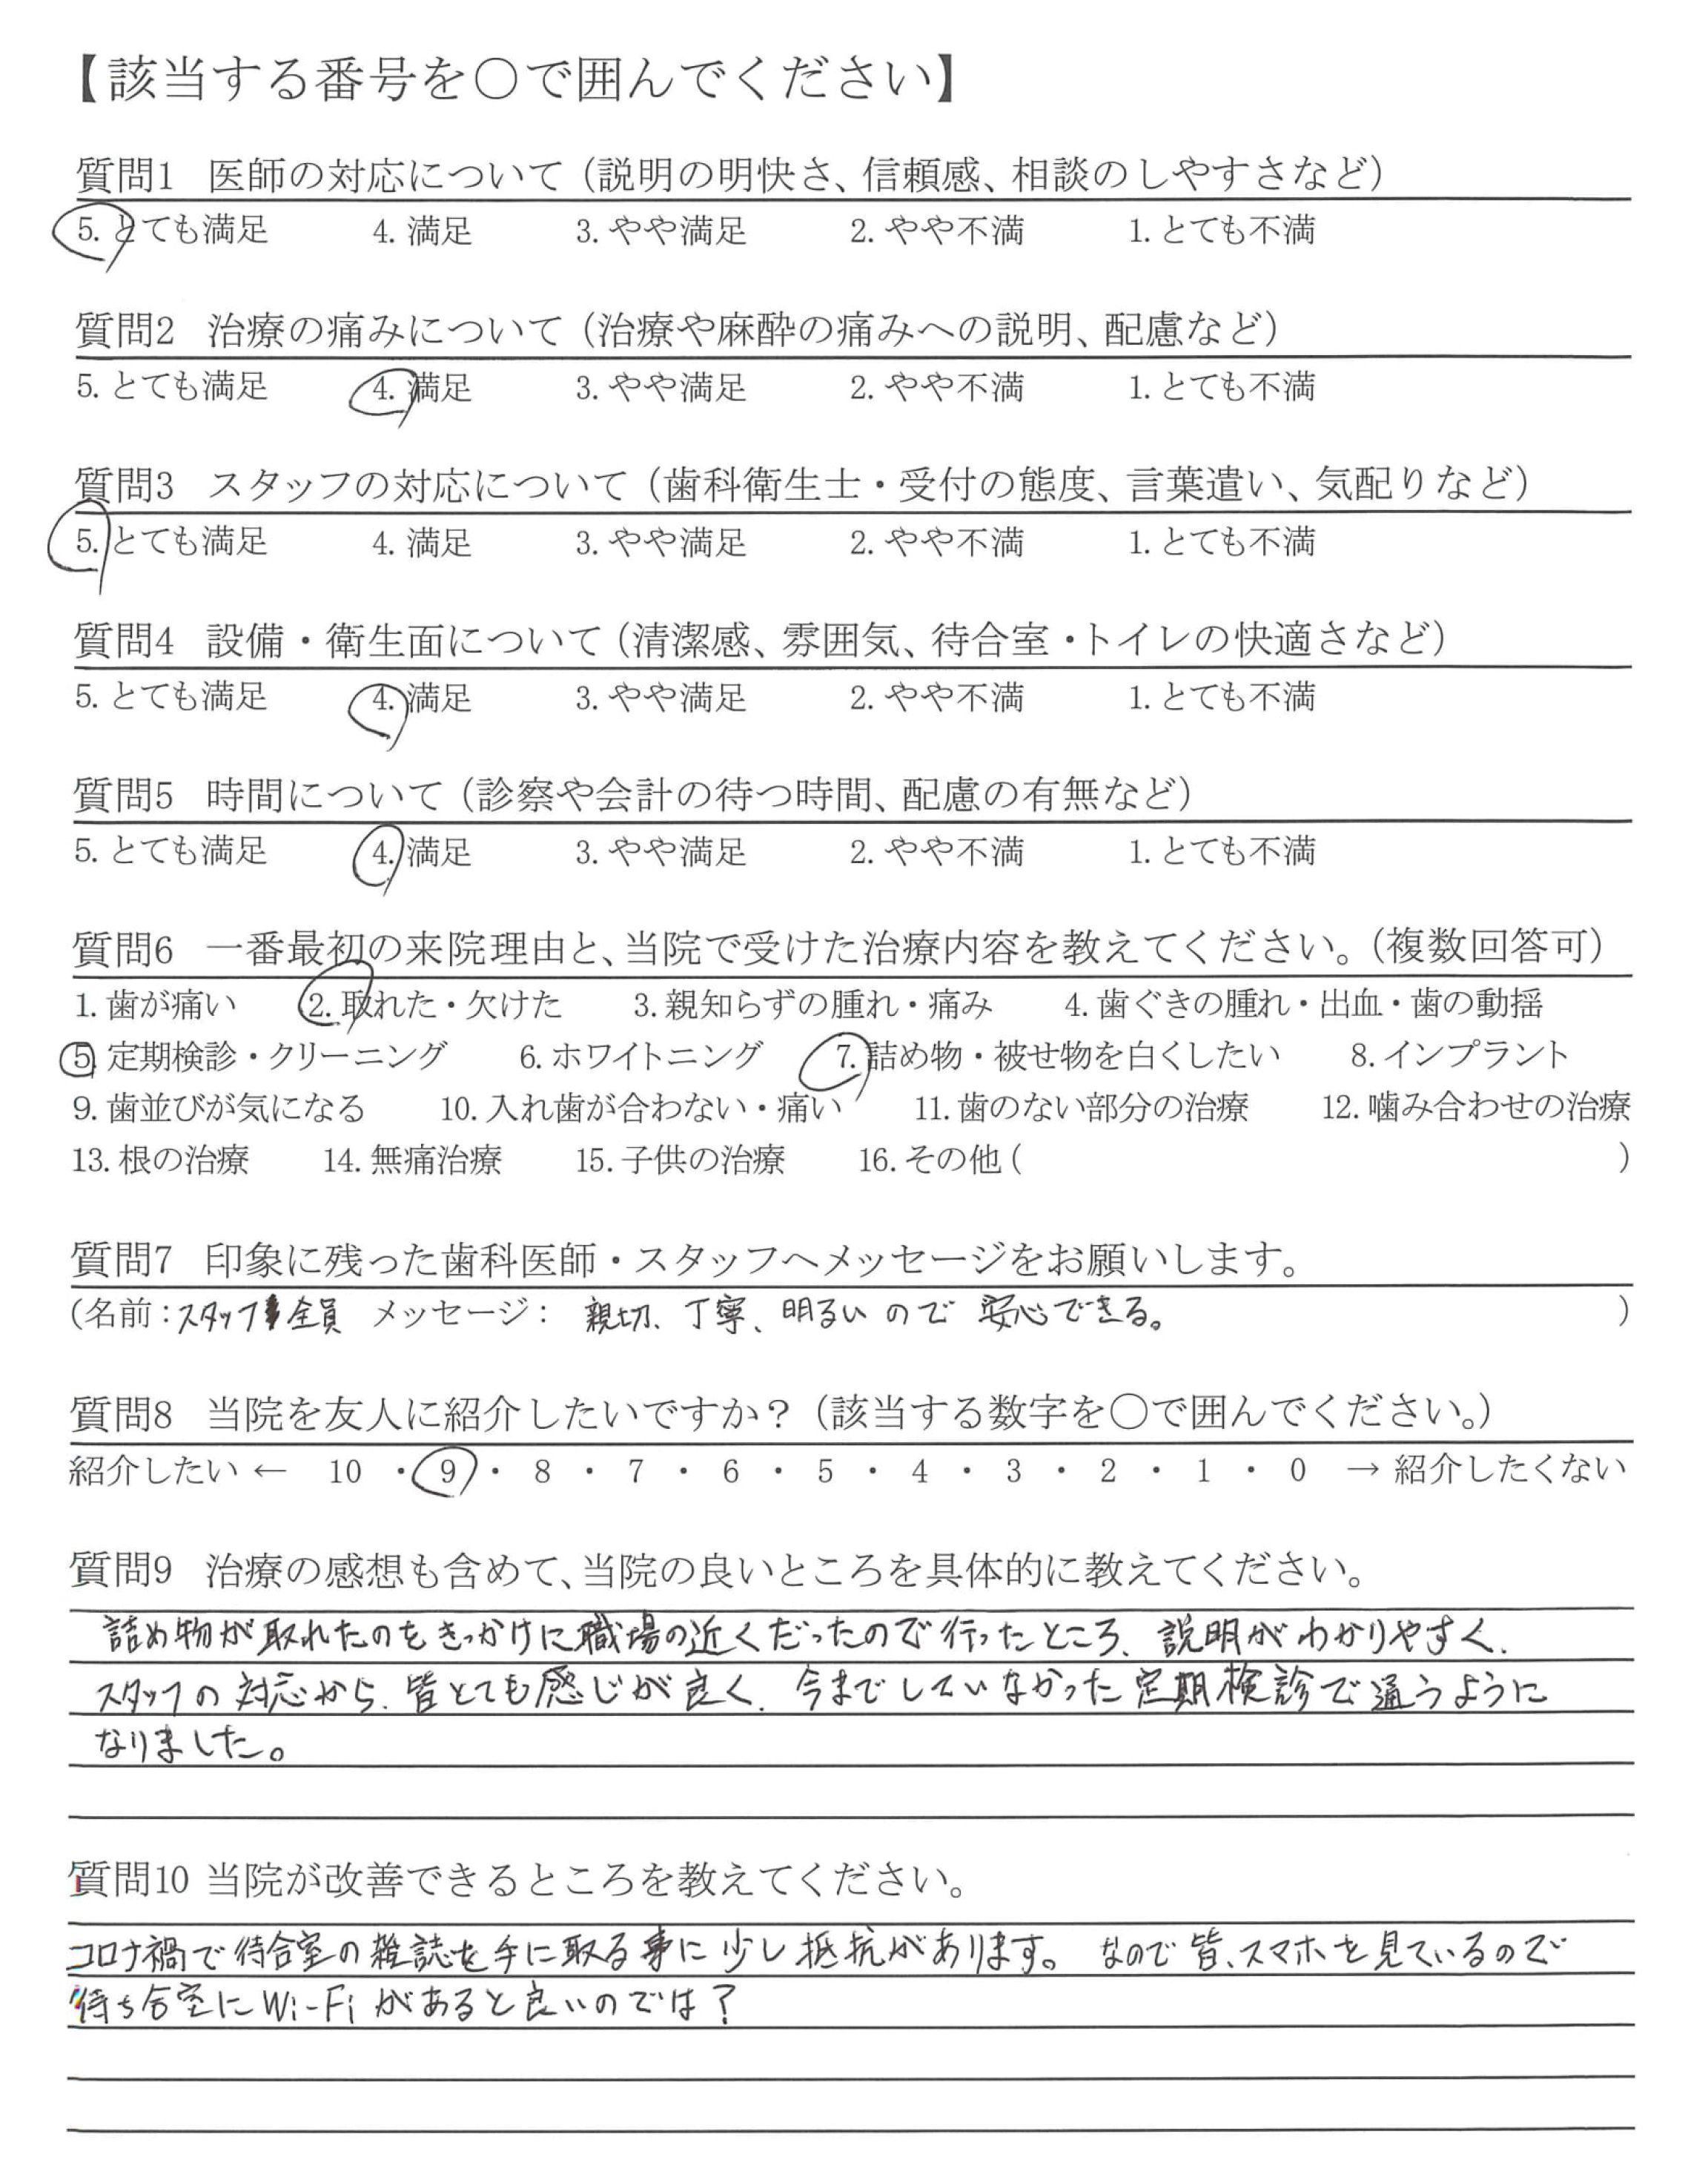 【該当する番号を○で囲んでください】
質問1 医師の対応について（説明の明快さ、信頼感、相談のしやすさなど）
5. とても満足 4. 満足 3. やや満足 2. やや不満 1. とても不満
質問2 治療の痛みについて（治療や麻酔の痛みへの説明、配慮など）
5. とても満足 4. 満足 3. やや満足 2. やや不満 1. とても不満
質問3 スタッフの対応について（歯科衛生士・受付の態度、言葉遣い、気配りなど）
5. とても満足 4. 満足 3. やや満足 2. やや不満 1. とても不満
質問4 設備・衛生面について（清潔感、雰囲気、待合室・トイレの快適さなど）
5. とても満足 4. 満足 3. やや満足 2. やや不満 1. とても不満
質問5 時間について（診察や会計の待つ時間、配慮の有無など）
5. とても満足 4. 満足 3. やや満足 2. やや不満 1. とても不満
質問6 一番最初の来院理由と、当院で受けた治療内容を教えてください。（複数回答可）
1. 歯が痛い 2. 取れた・欠けた 3. 親知らずの腫れ・痛み 4. 歯ぐきの腫れ・出血・歯の動揺
5. 定期検診・クリーニング 6. ホワイトニング 7. 詰め物・被せ物を白くしたい 8. インプラント
9. 歯並びが気になる 10. 入れ歯が合わない・痛い 11. 歯のない部分の治療 12. 噛み合わせの治療
13. 根の治療 14. 無痛治療 15. 子供の治療 16. その他（ ）
質問7 印象に残った歯科医師・スタッフへメッセージをお願いします。
（名前：スタッフ全員 メッセージ： 親切、丁寧、明るいので 安心できる。 ）
質問8 当院を友人に紹介したいですか？（該当する数字を○で囲んでください。）
紹介したい ← 10 ・ 9 ・ 8 ・ 7 ・ 6 ・ 5 ・ 4 ・ 3 ・ 2 ・ 1 ・ 0 → 紹介したくない
質問9 治療の感想も含めて、当院の良いところを具体的に教えてください。
詰め物が取れたのをきっかけに職場の近くだったので行ったところ、説明がわかりやすく、
スタッフの対応から、皆とても感じが良く、今までしていなかった定期検診で通うように
なりました。
質問10 当院が改善できるところを教えてください。
コロナ禍で待合室の雑誌を手に取る事に少し抵抗があります。なので皆、スマホを見ているので
待ち合室にWi-Fiがあると良いのでは？